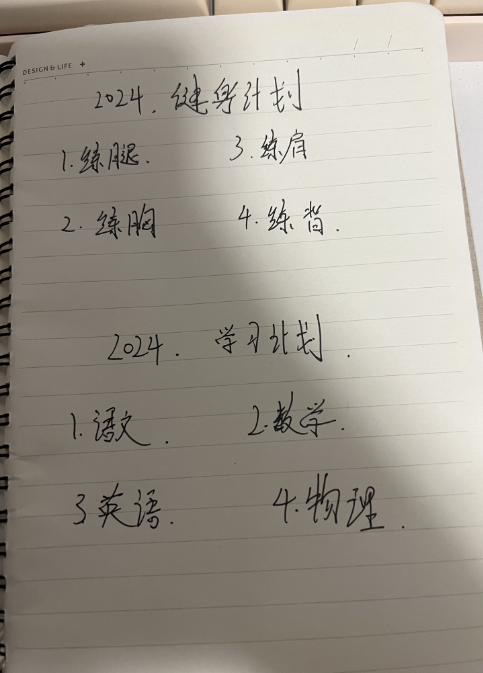 DESIGN & LIFE +
/ /
2024. 健身计划
1.练腿. 3.练肩
2.练胸 4.练背.
2024. 学习计划.
1.语文. 2.数学.
3英语. 4.物理.